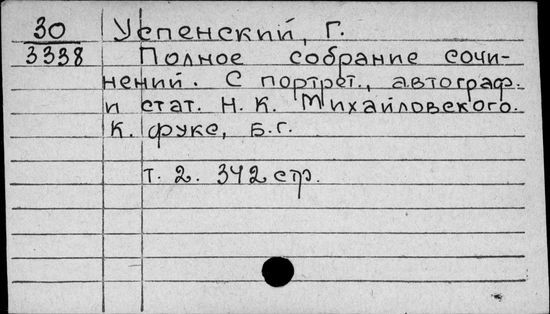 30 Успенский, Г.
3338 Полное собрание сочи-
нений. С портрет., автограф.
и стат. Н. К. Михайловского.
К. Фукс, Б.г.
т. 2. 342 стр.